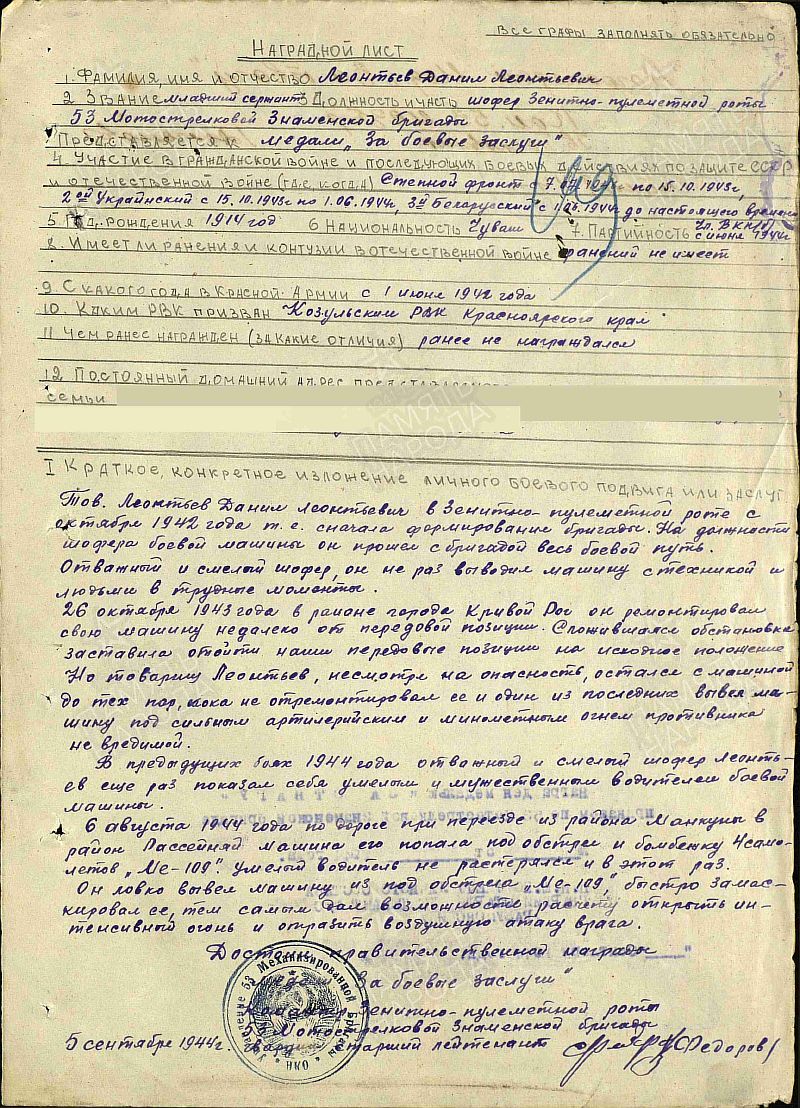 Все графы заполнять обязательно
Наградной лист
1. Фамилия, имя и отчество Леонтьев Данил Леонтьевич
2 Звание младший сержант 3 Должность и часть шофер Зенитно-пулеметной роты
53 Мотострелковой Знаменской бригады
Представляется к медали „За боевые заслуги"
4. Участие в гражданской войне и последующих боевых действиях по защите СССР
и отечественной войне (где, когда) Степной фронт с 7. по 15.10.1943г,
2ой Украинский с 15.10.1943г по 1.06.1944г, 3й Белорусский с 1944г до настоящего времени
5. Год рождения 1914 год 6 Национальность Чуваш 7. Партийность Чл. ВКП(б)
с июня 1944г
8. Имеет ли ранения и контузии в отечественной войне ранений не имеет
9. С какого года в Красной Армии с 1 июня 1942 года
10. Каким РВК призван Козульским РВК Красноярского края
11 Чем ранее награжден (за какие отличия) ранее не награждался
12 Постоянный домашний адрес
семьи
I Краткое, конкретное изложение личного боевого подвига или заслуг
Тов. Леонтьев Данил Леонтьевич в Зенитно-пулеметной роте с
октября 1942 года т.е. сначала формирование бригады. На должности
шофера боевой машины он прошел с бригадой весь боевой путь.
Отважный и смелый шофер, он не раз выводил машину с техникой и
людьми в трудные моменты.
26 октября 1943 года в районе города Кривой Рог он ремонтировал
свою машину недалеко от передовой позиции. Сложившаяся обстановка
заставила отойти наши передовые позиции на исходное положение
Но товарищ Леонтьев, несмотря на опасность, остался с машиной
до тех пор, пока не отремонтировал ее и один из последних вывел ма-
шину под сильным артилерийским и минометным огнем противника
не вредимой.
В предыдущих боях 1944 года отважный и смелый шофер Леонть-
ев еще раз показал себя умелым и мужественным водителем боевой
машины.
6 августа 1944 года по дороге при переезде из района Манкуны в
район Рассейная машина его попала под обстрел и бомбежку 4 само-
летов „Ме-109". Умелый водитель не растерялся и в этот раз.
Он ловко вывел машину из под обстрела „Ме-109", быстро замас-
кировал ее, тем самым дал возможность расчету открыть ин-
тенсивный огонь и отразить воздушную атаку врага.
Достоин правительственной награды
медали „За боевые заслуги"
Командир Зенитно-пулеметной роты
Мотострелковой Знаменской бригады
5 сентября 1944г. Гвардии старший лейтенант /Федоров/
Управление 53 Механизированной бригады